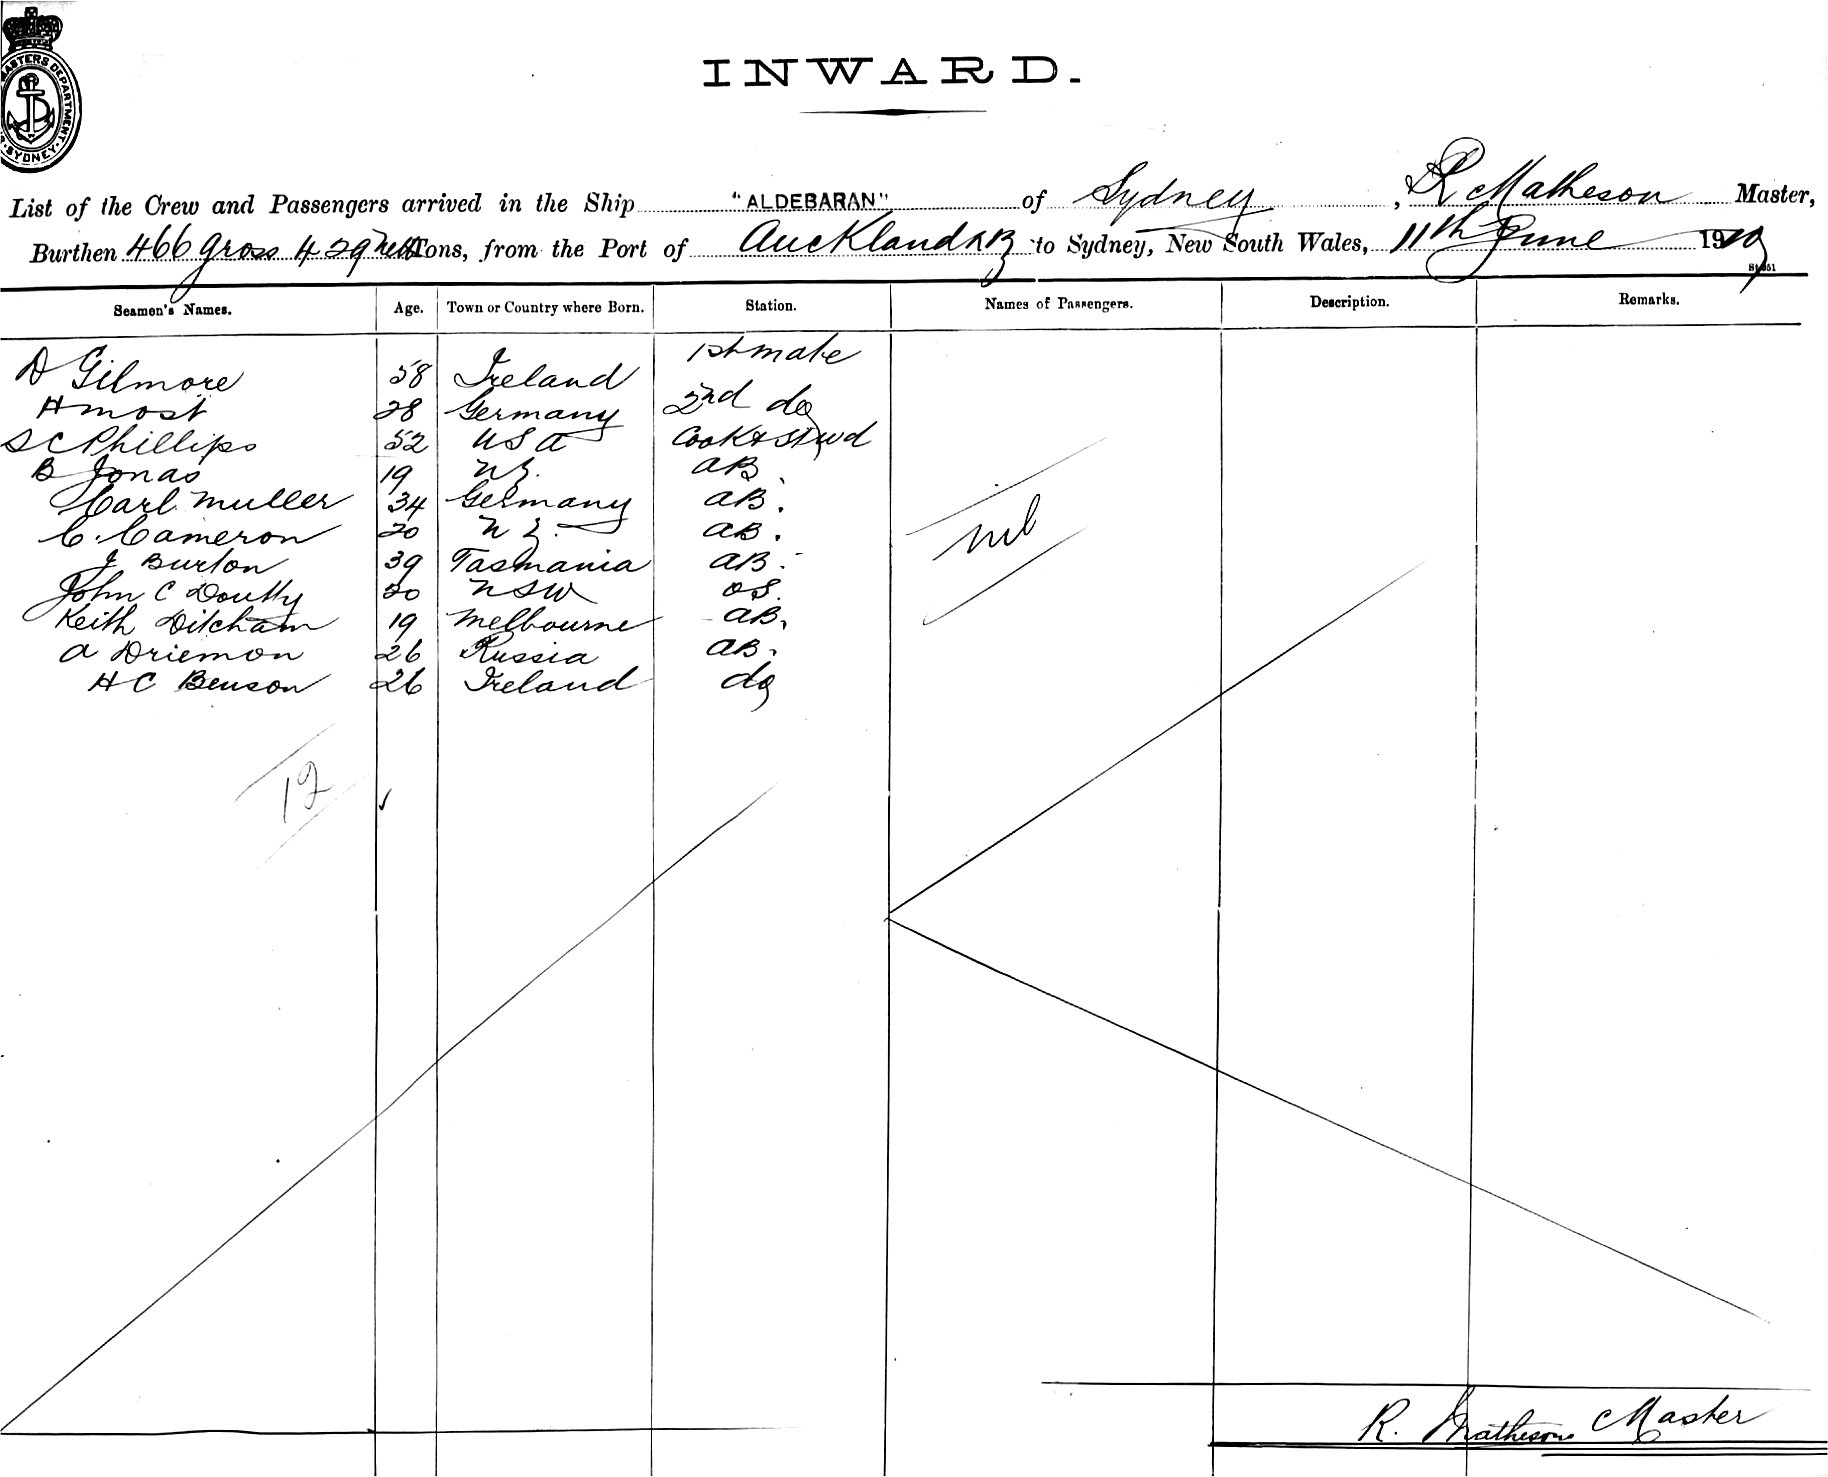 MASTERS DEPARTMENT
SYDNEY
INWARD.
List of the Crew and Passengers arrived in the Ship "ALDEBARAN" of Sydney, R Matheson Master,
Burthen 466 gross 429 nett Tons, from the Port of Auckland NZ to Sydney, New South Wales, 11th June 19
Seamen's Names. Age. Town or Country where Born. Station. Names of Passengers. Description. Remarks.
D Gilmore 58 Ireland 1st mate
H Most 28 Germany 2nd do
S C Phillips 52 USA Cook & Stwd
B Jonas 19 NZ. AB
Carl Muller 34 Germany AB.
C. Cameron 20 NZ. AB.
J Burton 39 Tasmania AB.
John C Doutty 20 NSW OS.
Keith Ditcham 19 Melbourne AB.
A Driemon 26 Russia AB.
H C Benson 26 Ireland do
nil
12
R. Matheson Master